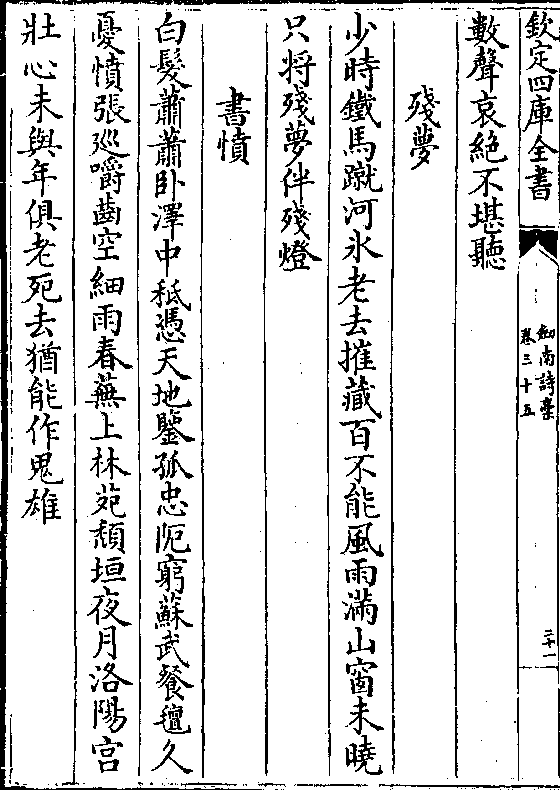 欽定四庫全書
劍南詩稾
卷三十五
三十一
數聲哀絕不堪聽
殘夢
少時鐵馬蹴河氷老去摧藏百不能風雨滿山窗未曉
只将殘夢伴殘燈
書憤
白髮蕭蕭卧澤中秪憑天地鑒孤忠阨窮蘇武餐氊久
憂憤張廵嚼齒空細雨春蕪上林苑頹垣夜月洛陽宫
壯心未與年俱老死去猶能作鬼雄